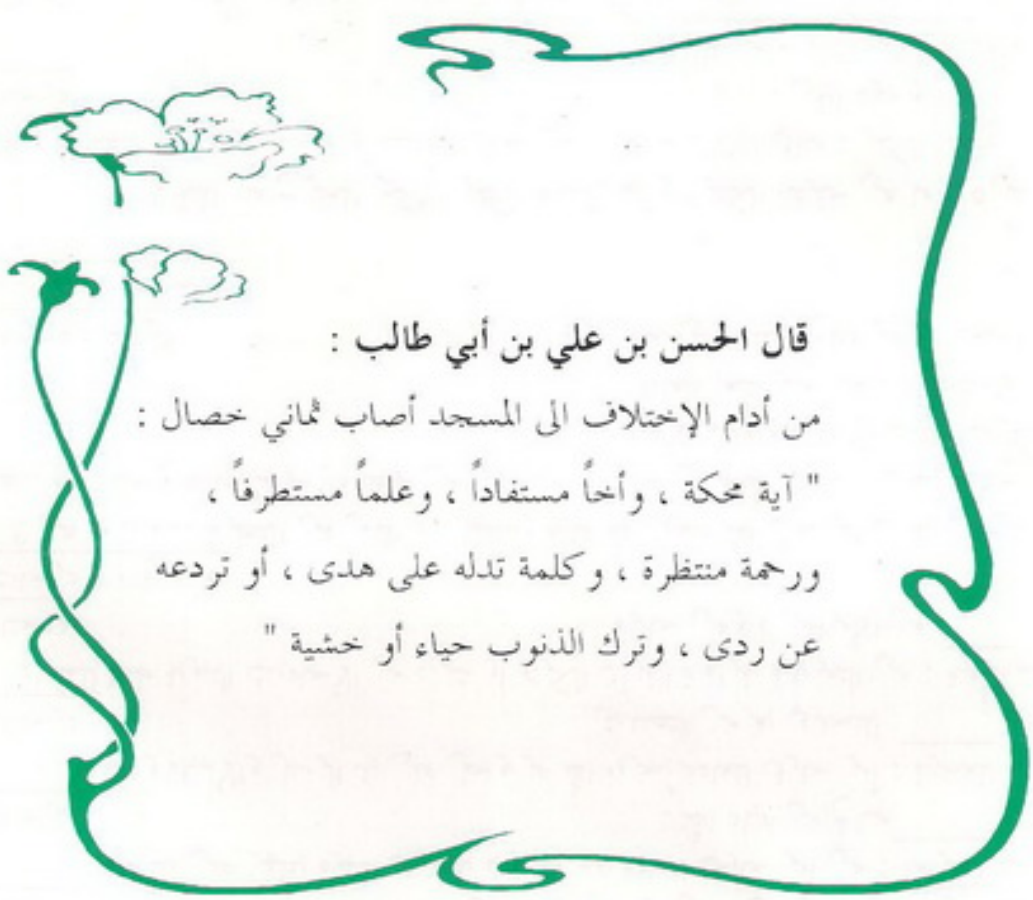 قال الحسن بن علي بن أبي طالب :
من أدام الإختلاف الى المسجد أصاب ثماني خصال :
" آية محكة ، وأخاً مستفاداً ، وعلماً مستطرفاً ،
ورحمة منتظرة ، وكلمة تدله على هدى ، أو تردعه
عن ردى ، وترك الذنوب حياء أو خشية "